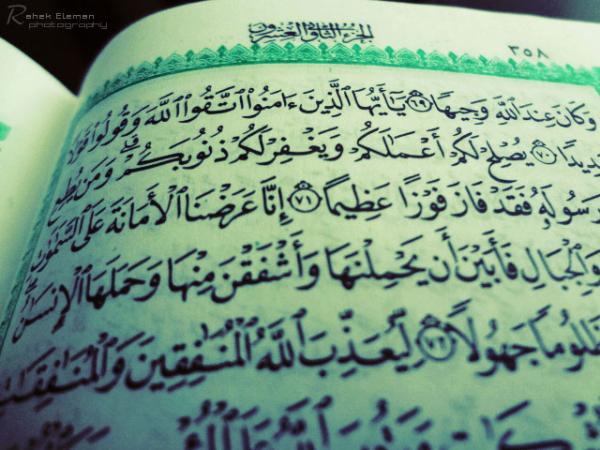 Rahek Eleman
photography
الجزء الثاني والعشرون
٣٥٨
وَكَانَ عِندَ ٱللَّهِ وَجِيهًا ٦٩ يَٰٓأَيُّهَا ٱلَّذِينَ ءَامَنُوا۟ ٱتَّقُوا۟ ٱللَّهَ وَقُولُوا۟ قَوْلًا
سَدِيدًا ٧٠ يُصْلِحْ لَكُمْ أَعْمَٰلَكُمْ وَيَغْفِرْ لَكُمْ ذُنُوبَكُمْ ۗ وَمَن يُطِعِ
وَرَسُولَهُۥ فَقَدْ فَازَ فَوْزًا عَظِيمًا ٧١ إِنَّا عَرَضْنَا ٱلْأَمَانَةَ عَلَى ٱلسَّمَٰوَٰتِ
وَٱلْجِبَالِ فَأَبَيْنَ أَن يَحْمِلْنَهَا وَأَشْفَقْنَ مِنْهَا وَحَمَلَهَا ٱلْإِنسَٰنُ
ظَلُومًا جَهُولًا ٧٢ لِّيُعَذِّبَ ٱللَّهُ ٱلْمُنَٰفِقِينَ وَٱلْمُنَٰفِقَٰتِ